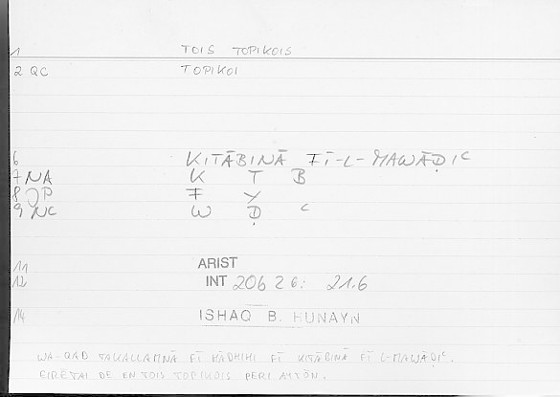 1 TOIS TOPIKOIS
2 QC TOPIKOI
6 KITĀBINĀ FĪ-L-MAWĀḌIC
7 NA K T B
8 JP F Y
9 NC W Ḍ C
11 ARIST
12 INT 20626: 21.6
14 ISHAQ B. HUNAYN
WA-QAD TAKALLAMNĀ FĪ HĀDHIHI FĪ KITĀBINĀ FĪ L-MAWĀḌIC.
EIRĒTAI DE EN TOIS TOPIKOIS PERI AYTŌN.